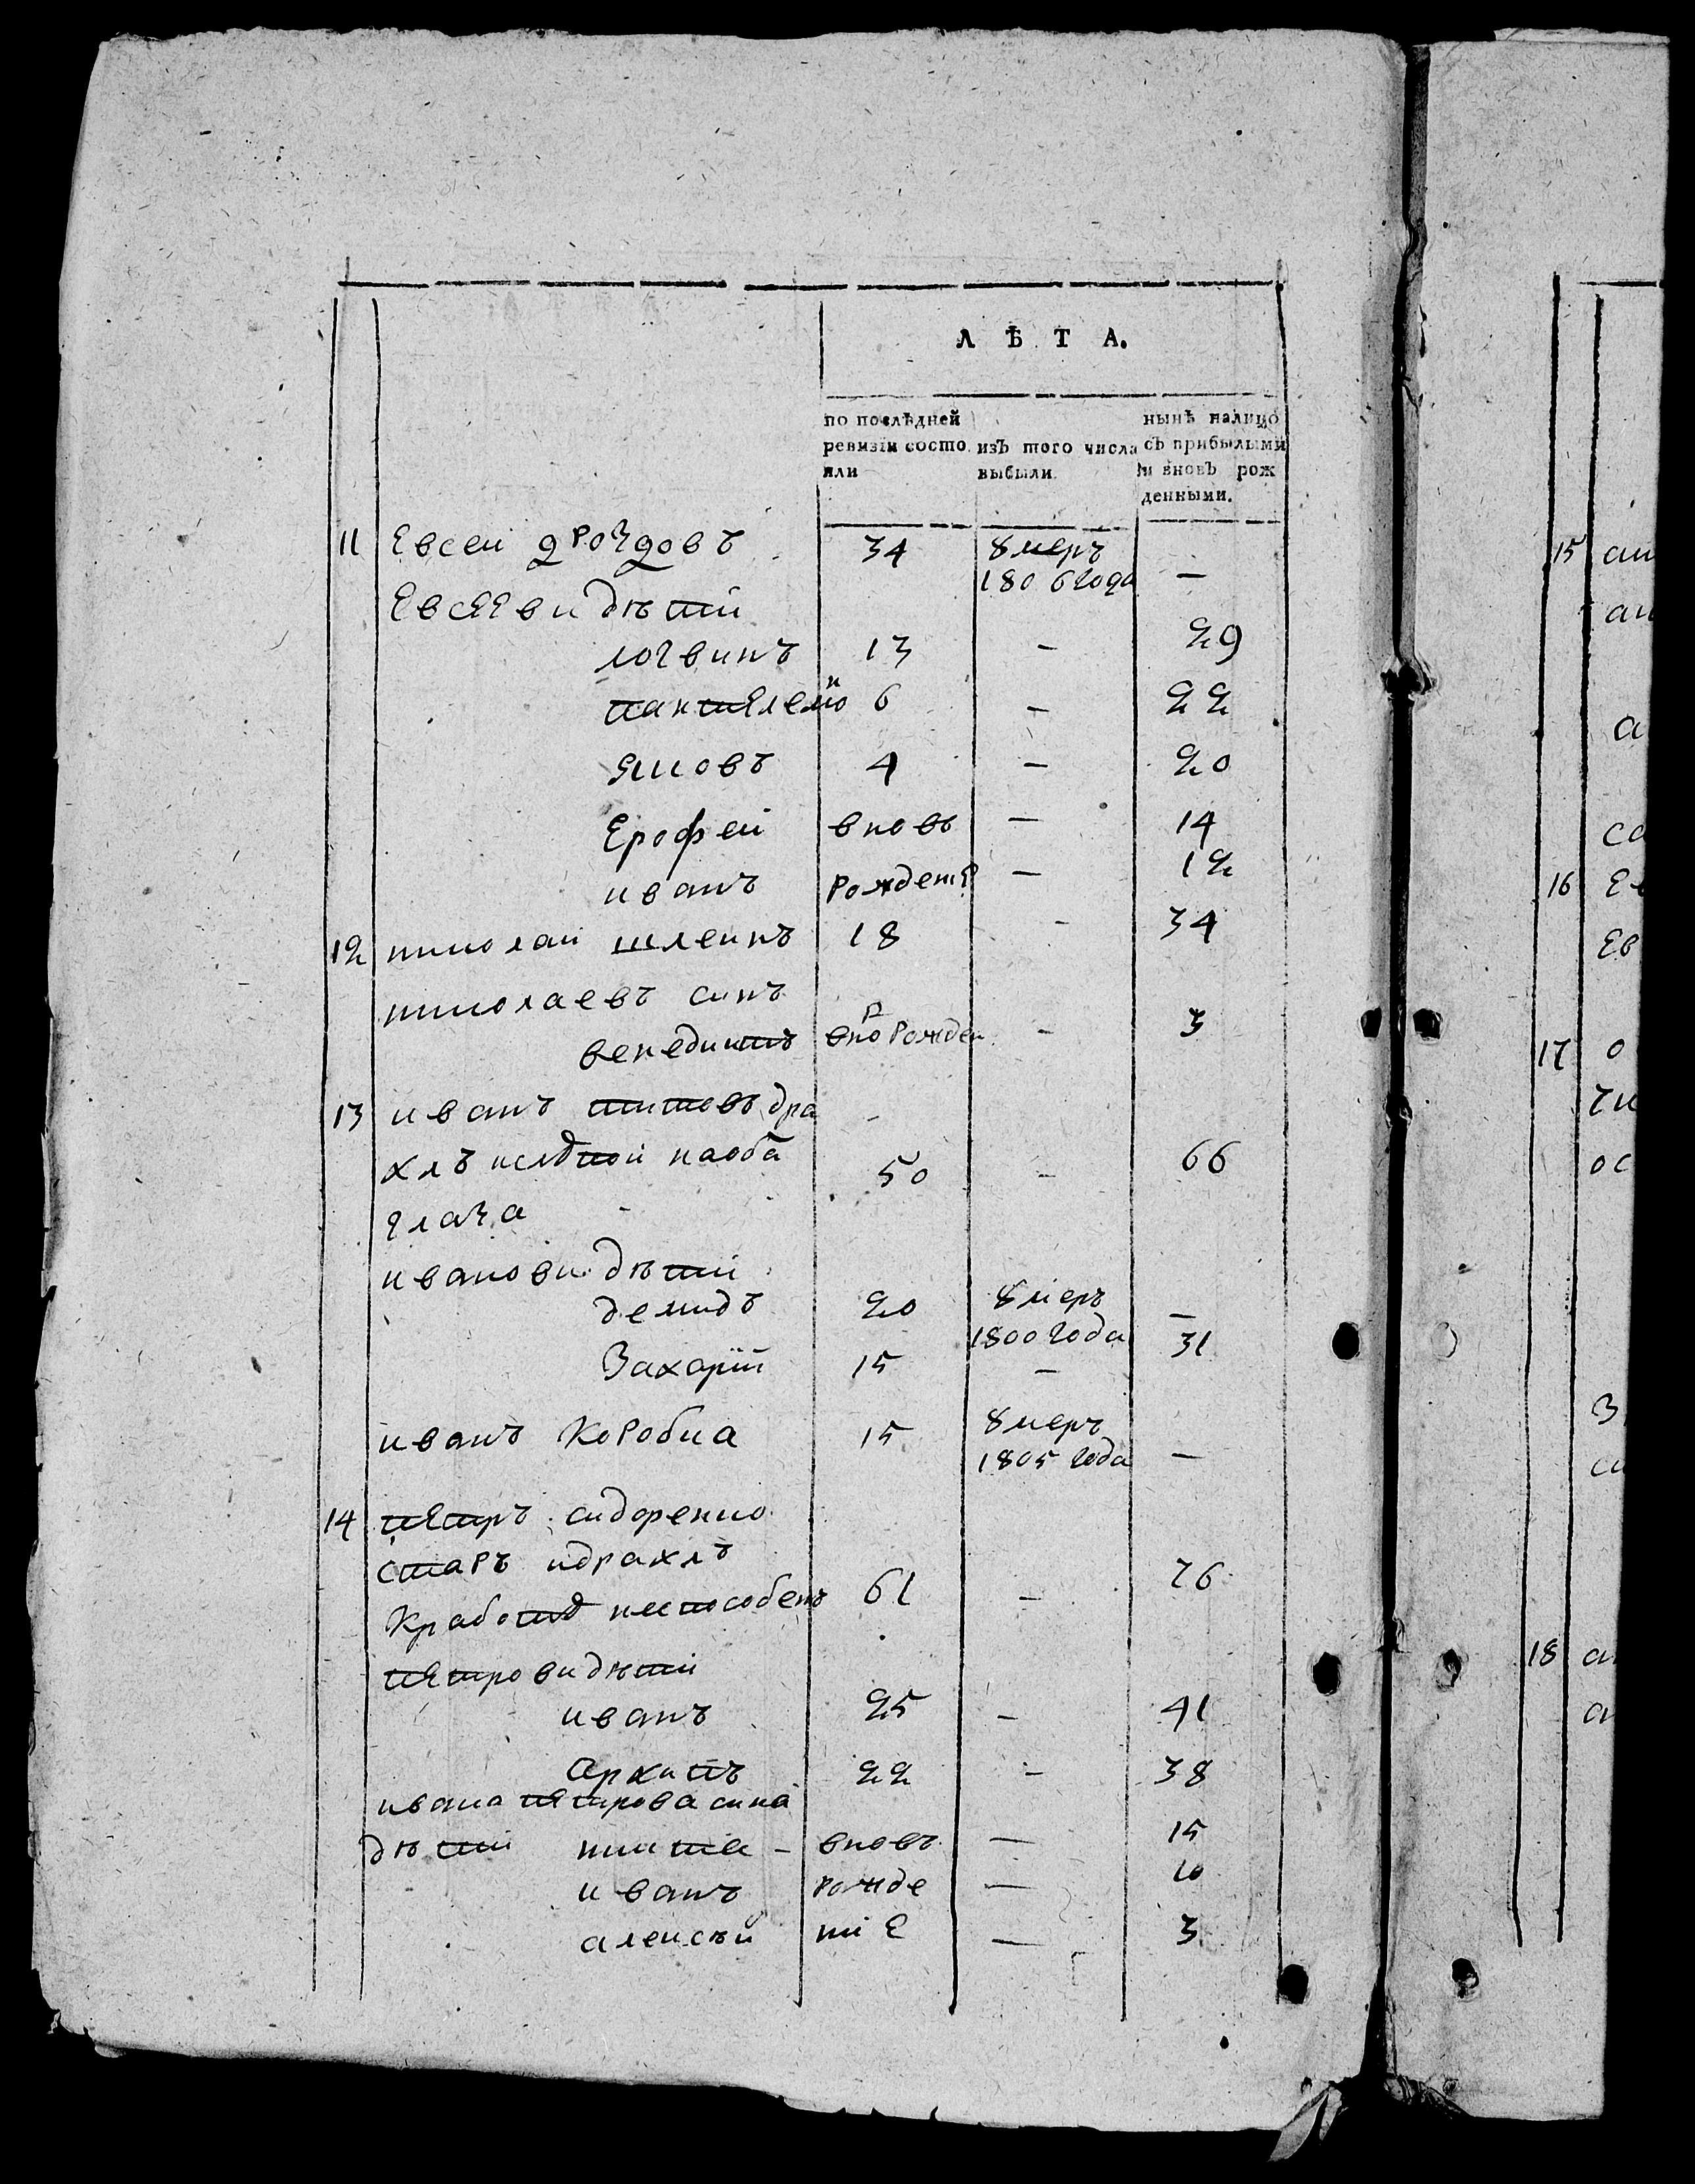 ЛѢТА.
по послѣдней ревизіи состояли
изъ того числа выбыли.
нынѣ налицо съ прибылыми и вновь рожденными.
11 Евсей дроздовъ 34 умеръ 1806 года —
Евсееви дѣти
логвинъ 13 — 29
пантелемо н 6 — 22
яковъ 4 — 20
Ерофей вновь — 14
иванъ рождені — 12
12 николай шлеинъ 18 — 34
николаевъ синъ
венедиктъ вно в рожден — 3
13 иванъ титовъ дра —
хлъ наоба 50 — 66
глаза -
иванови дѣти
демидъ 20 умеръ 1800 года —
Захарій 15 — 31
иванъ Коробка 15 умеръ 1805 года —
14 петръ сидоренко
старъ идрахлъ
Кработѣ неспособенъ 61 — 76
петрови дѣти
иванъ 25 — 41
архипъ 22 — 38
ивана петрова сина
дѣти никита — вновь — 15
иванъ рожде — 10
алексѣй ніе — 3
15
16
17
18